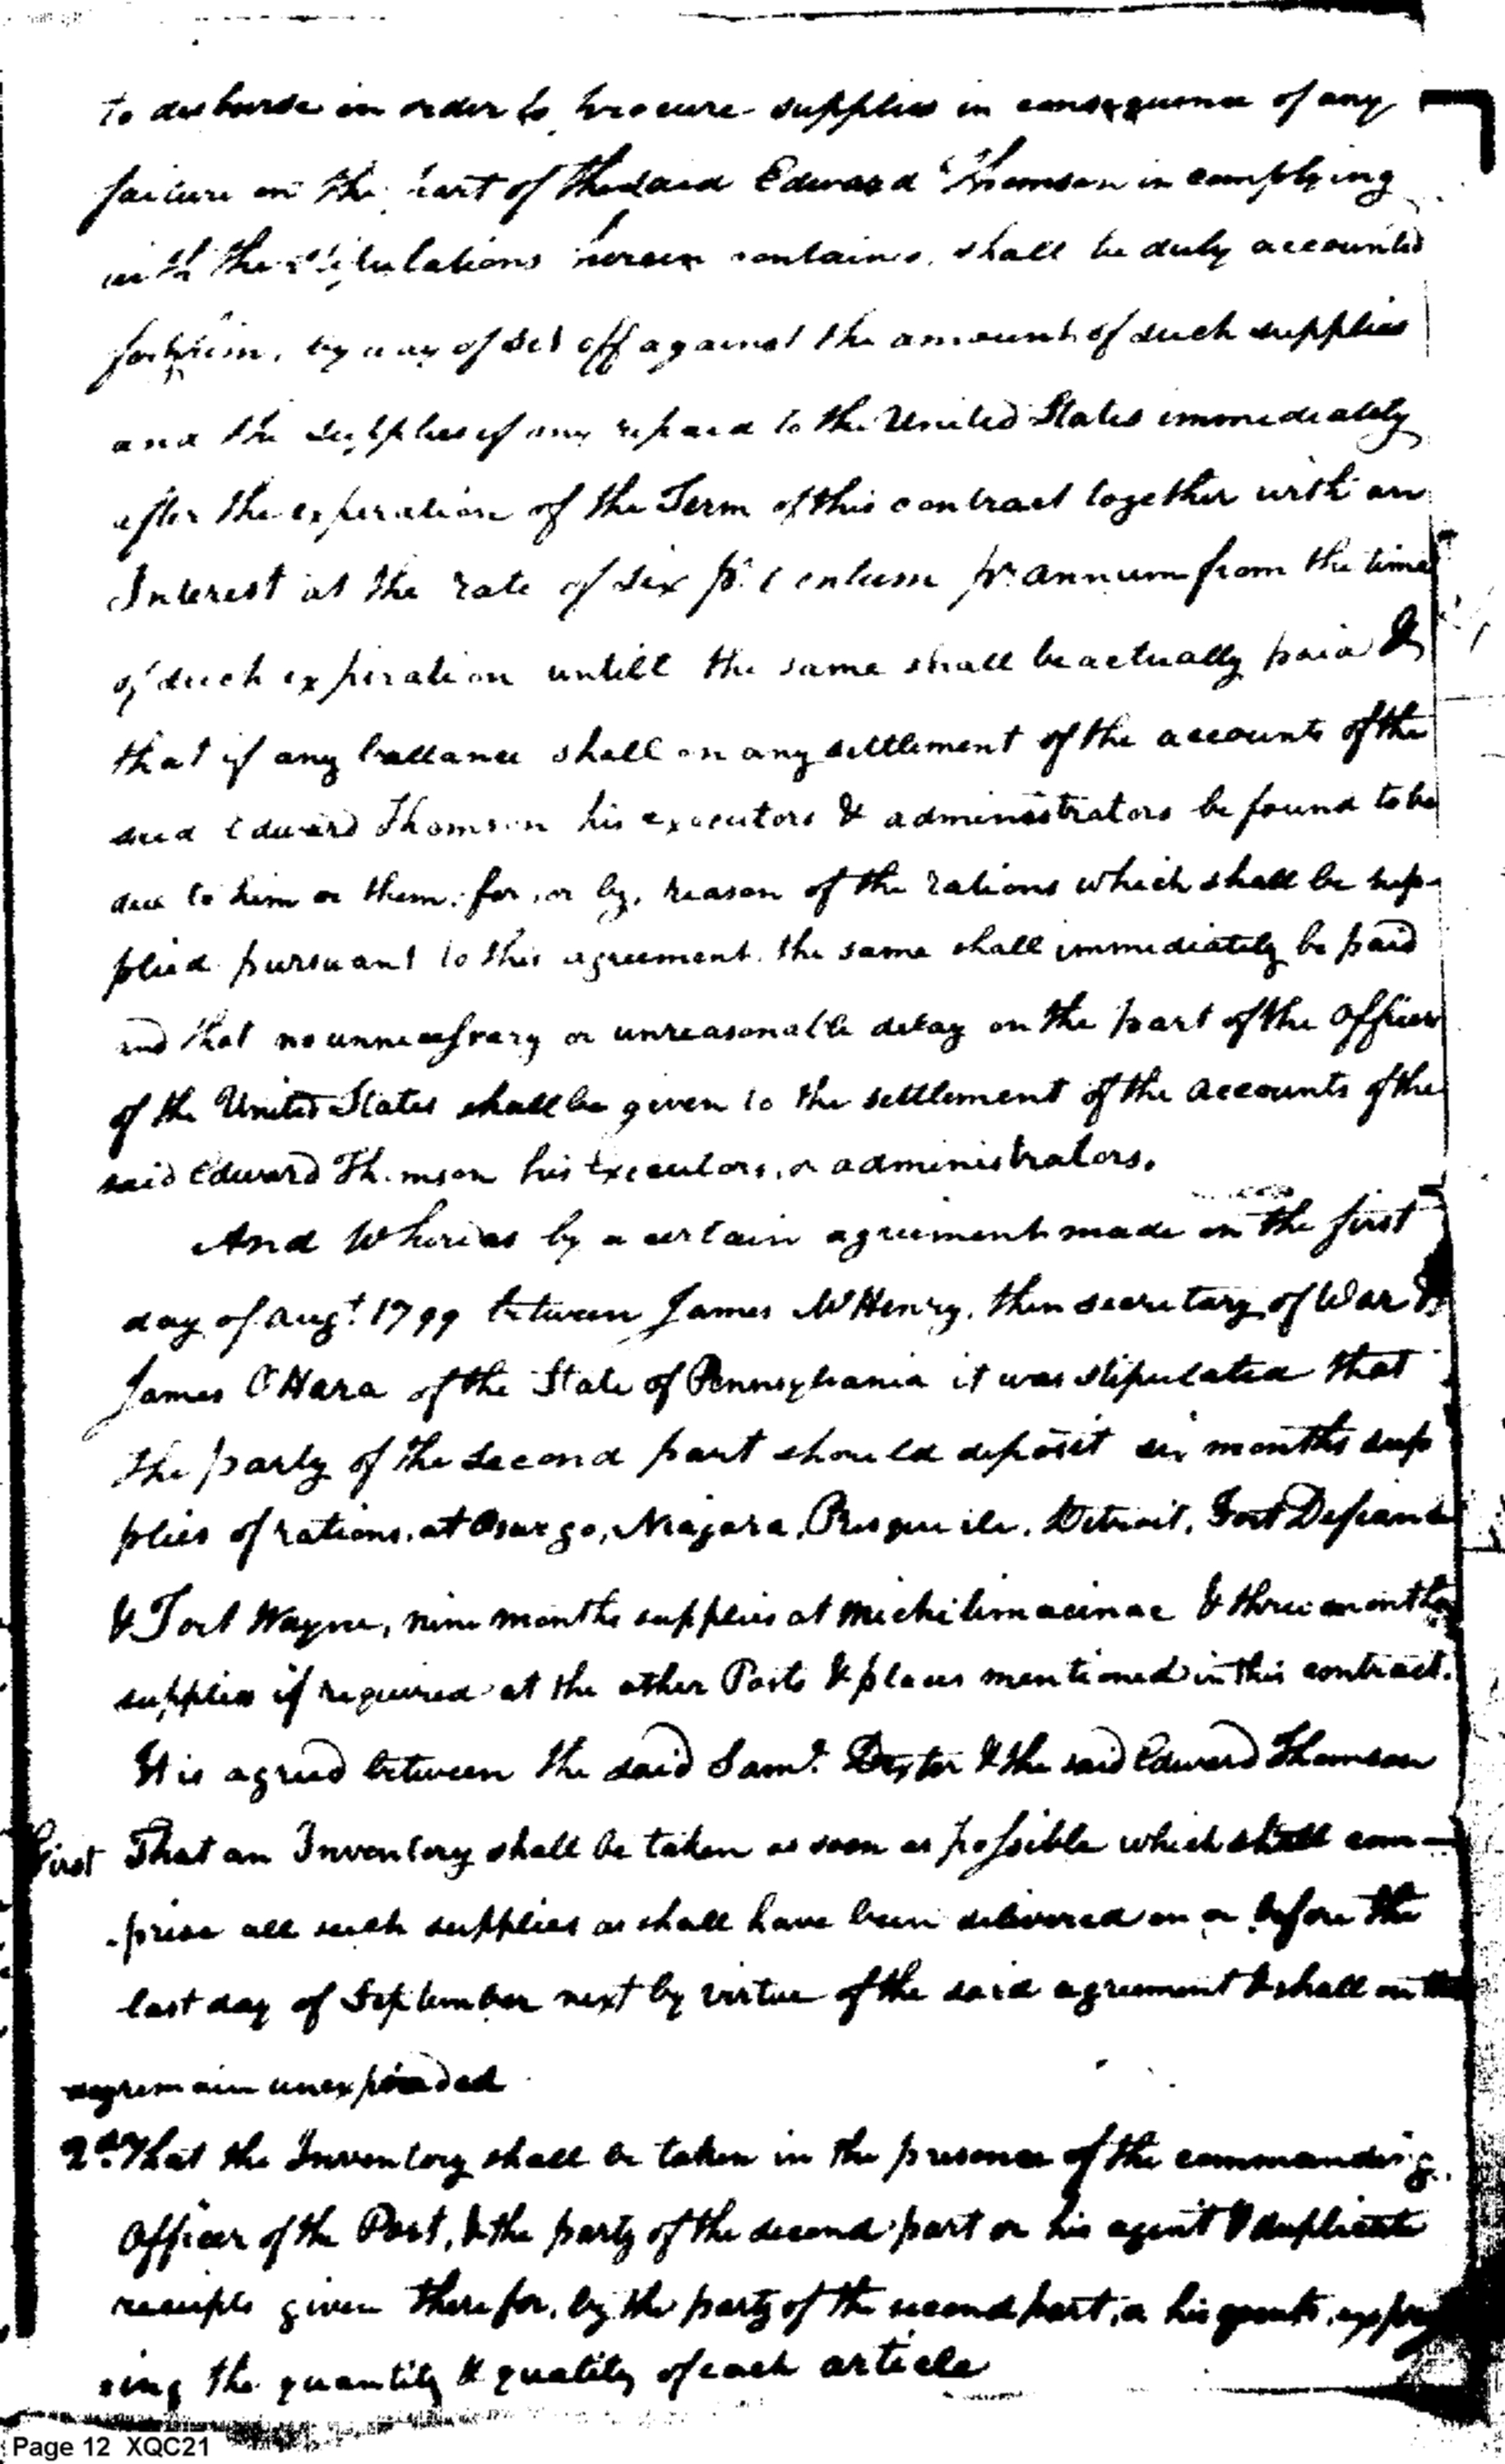 to disburse in order to procure supplies in consequence of any
failure on the part of the said Edward Thomson in complying
with the stipulations herein contained, shall be duly accounted
for by him, by way of set off against the amount of such supplies
and the supplies if any repaid to the United States immediately
after the expiration of the Term of this contract together with an
Interest at the rate of six pr. Centum pr. annum from the time
of such expiration untill the same shall be actually paid &
that if any ballance shall on any settlement of the accounts of the
said Edward Thomson his executors & administrators be found to be
due to him or them, for, or by, reason of the rations which shall be sup-
plied pursuant to this agreement. the same shall immediately be paid
and that no unnecessary or unreasonable delay on the part of the officers
of the United States shall be given to the settlement of the accounts of the
said Edward Thomson his Executors, or administrators.
And Whereas by a certain agreement made on the first
day of Augt. 1799 between James McHenry, then secretary of War &
James OHara of the State of Pennsylvania it was stipulated that
the party of the second part should deposit six months sup
plies of rations, at Oswego, Niagara, Presque isle, Detroit, Fort Defiance
& Fort Wayne, nine months supplies at Michilimacinac & three months
supplies if required at the other Posts & places mentioned in this contract.
It is agreed between the said Saml. Dexter & the said Edward Thomson
First That an Inventory shall be taken as soon as possible which shall com-
-prise all such supplies as shall have been delivered on or before the
last day of September next by virtue of the said agreement & shall on that
day remain unexpended
2dly That the Inventory shall be taken in the presence of the commanding
Officer of the Post, & the party of the second part or his agent & duplicate
receipts given therefor, by the party of the second part, or his agents, expres
sing the quantity & quality of each article
Page 12 XQC21